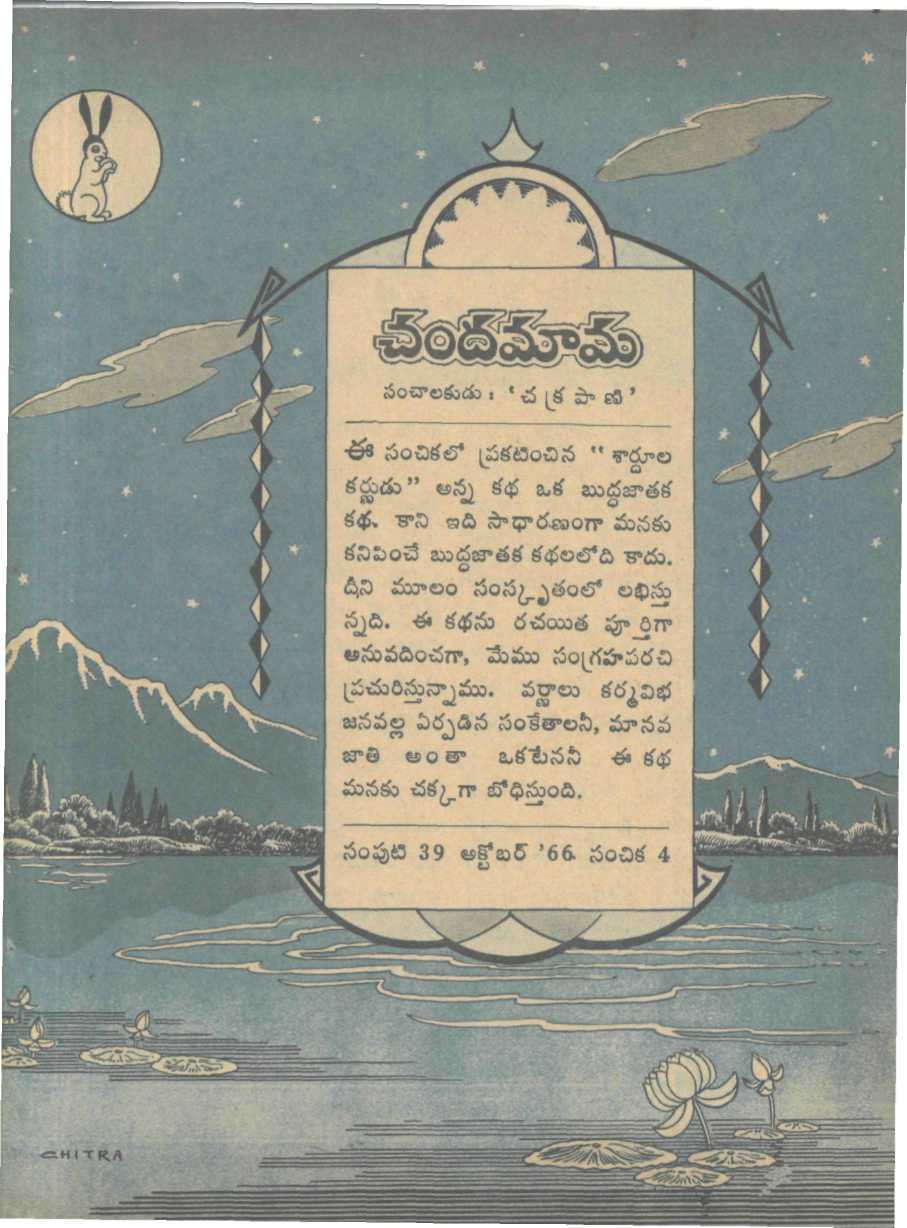 చందమామ
సంచాలకుడు : ‘చక్రపాణి’
ఈ సంచికలో ప్రకటించిన “శార్దూల
కర్ణుడు” అన్న కథ ఒక బుద్ధజాతక
కథ. కాని ఇది సాధారణంగా మనకు
కనిపించే బుద్ధజాతక కథలలోది కాదు.
దీని మూలం సంస్కృతంలో లభిస్తు
న్నది. ఈ కథను రచయిత పూర్తిగా
అనువదించగా, మేము సంగ్రహపరచి
ప్రచురిస్తున్నాము. వర్ణాలు కర్మవిభ
జనవల్ల ఏర్పడిన సంకేతాలనీ, మానవ
జాతి అంతా ఒకటేననీ ఈ కథ
మనకు చక్కగా బోధిస్తుంది.
సంపుటి 39 అక్టోబర్ ’66 సంచిక 4
CHITRA